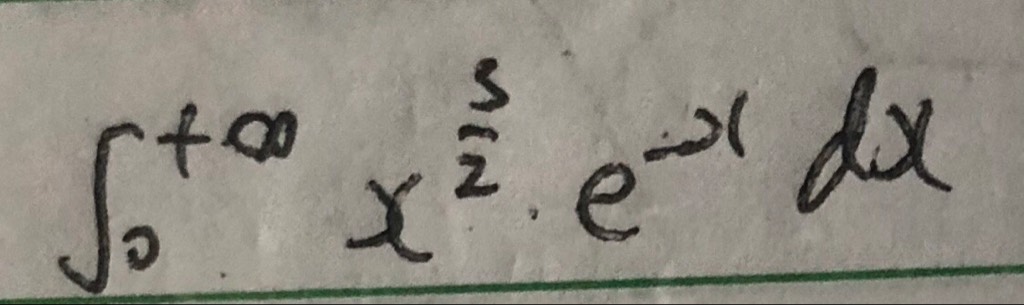 ∫₀^{+∞} x^{5/2} · e^{-x} dx